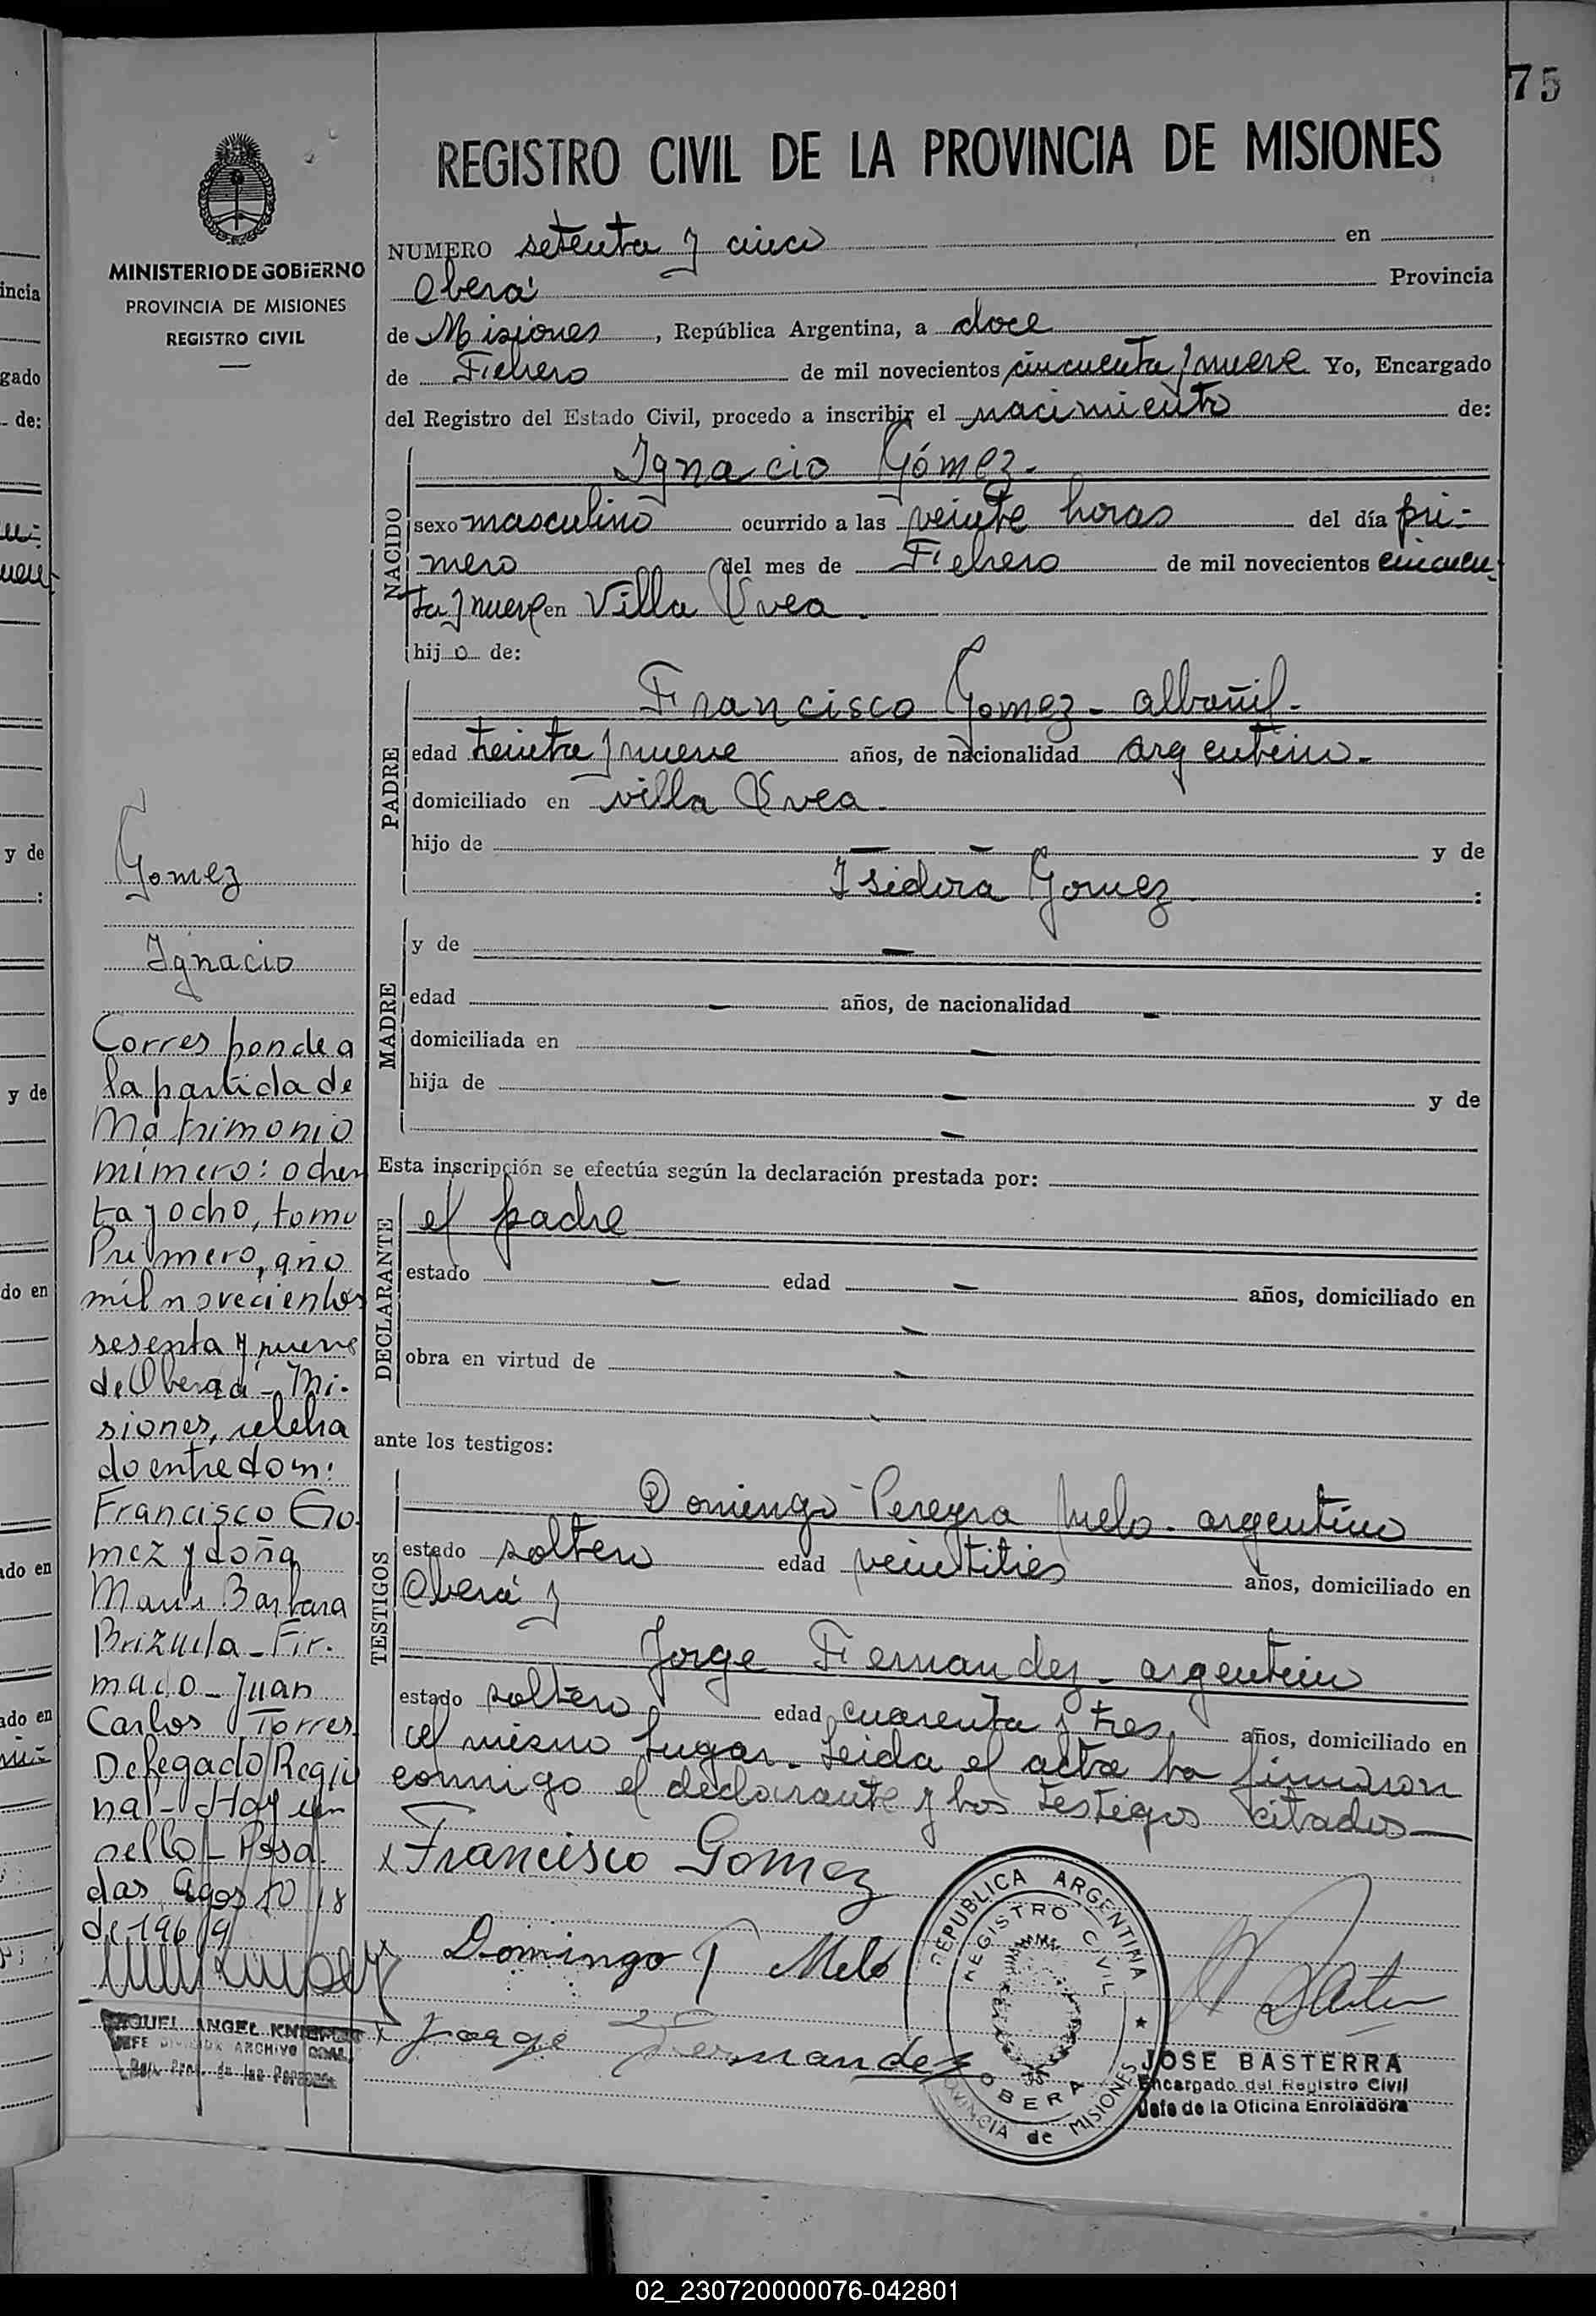 75
REGISTRO CIVIL DE LA PROVINCIA DE MISIONES
MINISTERIO DE GOBIERNO
PROVINCIA DE MISIONES
REGISTRO CIVIL
NUMERO setenta y cinco en
Oberá Provincia
de Misiones, República Argentina, a doce
de Febrero de mil novecientos cincuenta y nueve Yo, Encargado
del Registro del Estado Civil, procedo a inscribir el nacimiento de:
NACIDO
Ignacio Gómez.
sexo masculino ocurrido a las veinte horas del día pri-
mero del mes de Febrero de mil novecientos cincuen-
ta y nueve en Villa Svea.
hijo de:
PADRE
Francisco Gomez - albañil -
edad treinta y nueve años, de nacionalidad argentino -
domiciliado en villa Svea.
hijo de — — y de
Isidora Gomez :
MADRE
y de —
edad — años, de nacionalidad —
domiciliada en —
hija de — y de
—
Esta inscripción se efectúa según la declaración prestada por:
DECLARANTE
el padre
estado — edad — años, domiciliado en
—
obra en virtud de —
—
ante los testigos:
TESTIGOS
Domingo Pereyra Melo - argentino
estado soltero edad veintitres años, domiciliado en
Oberá y
Jorge Fernandez - argentino
estado soltero edad cuarenta y tres años, domiciliado en
el mismo lugar. Leida el acta la firmaron
conmigo el declarante y los testigos citados —
x Francisco Gomez
x Domingo P Melo
x Jorge Fernandez
REPUBLICA ARGENTINA
REGISTRO CIVIL
OBERA
PROVINCIA de MISIONES
JOSE BASTERRA
Encargado del Registro Civil
Jefe de la Oficina Enroladora
Gomez
Ignacio
Corresponde a
la partida de
Matrimonio
número: ochen
ta y ocho, tomo
Primero, año
mil novecientos
sesenta y nueve
de Oberá - Mi-
siones, celebra
do entre don:
Francisco Go-
mez y doña
Maria Barbara
Brizuela - Fir-
mado - Juan
Carlos Torres
Delegado Regio
nal - Hay un
sello - Posa
das Agosto 18
de 1969
MIGUEL ANGEL
JEFE DIVISION ARCHIVO GRAL.
Reg. Prov. de las Personas
incia
gado
de:
y de
:
y de
do en
do en
do en
02_230720000076-042801